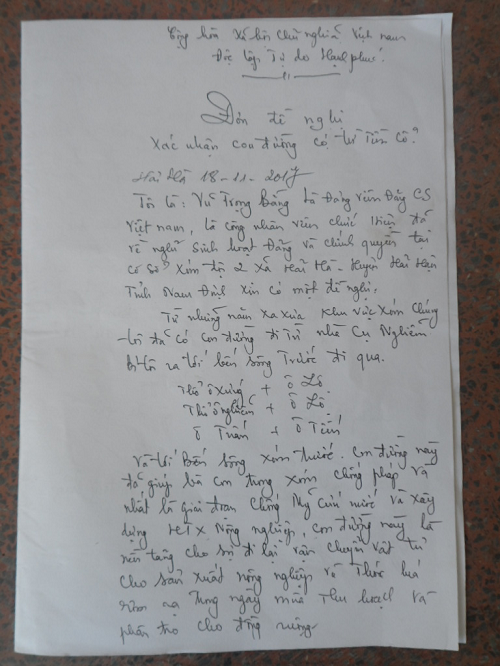 Cộng hòa Xã hội Chủ nghĩa Việt nam
Độc lập Tự do Hạnh phúc
Đơn đề nghị
Xác nhận con đường có từ Tiền Cổ?
Hải Hà 18-11-2017
Tôi là: Vũ Trọng Bằng là Đảng viên Đảng CS
Việt nam, là công nhân viên chức hiện đã
về nghỉ sinh hoạt Đảng và chính quyền tại
cơ sở xóm đội 2 xã Hải Hà - Huyện Hải Hậu
Tỉnh Nam Định xin có một đề nghị.
Từ những năm xa xưa khu vực xóm chúng
tôi đã có con đường đi từ nhà Cụ Nghiêm
ra tới bến sông Trước đi qua.
Thổ ô Xướng + ô Lô
Thổ ô nghiêm + ô Lộ
ô Tuấn + ô Tiến
Và tới Bến sông xóm trước. Con đường này
đã giúp bà con trong xóm chống pháp và
nhất là giai đoạn chống Mỹ cứu nước và xây
dựng HTX Nông nghiệp, con đường này là
nền tảng cho sự đi lại vận chuyển vật tư
cho sản xuất nông nghiệp và Thóc lúa
rơm rạ trong ngày mùa Thu hoạch và
phân tro cho đồng ruộng.